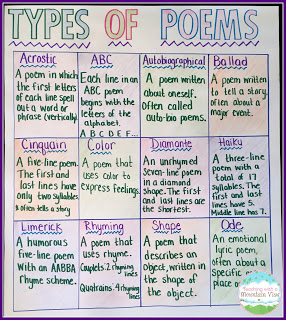 TYPES OF POEMS
Acrostic
A poem in which
the first letters
of each line spell
out a word or
phrase (vertically)
ABC
Each line in an
ABC poem
begins with the
letters of the
alphabet.
A B C D E F...
Autobiographical
A poem written
about oneself.
Often called
auto-bio poems.
Ballad
A poem written
to tell a story,
often about a
major event.
Cinquain
A five-line poem.
The first and
last lines have
only two syllables
& often tells a story
Color
A poem that
uses color to
express feelings.
Diamante
An unrhymed
seven-line poem
in a diamond
shape. The first
and last lines are
the shortest.
Haiku
A three-line
poem with a
total of 17
syllables. The
first and last
lines have 5.
Middle line has 7.
Limerick
A humorous
five-line poem
with an AABBA
rhyme scheme.
Rhyming
A poem that
uses rhyme.
Couplets: 2 rhyming
lines
Quatrains: 4 rhyming
lines
Shape
A poem that
describes an
object, written in
the shape of
the object.
Ode
An emotional
lyric poem,
often about a
specific
place o
Teaching with a
Mountain View